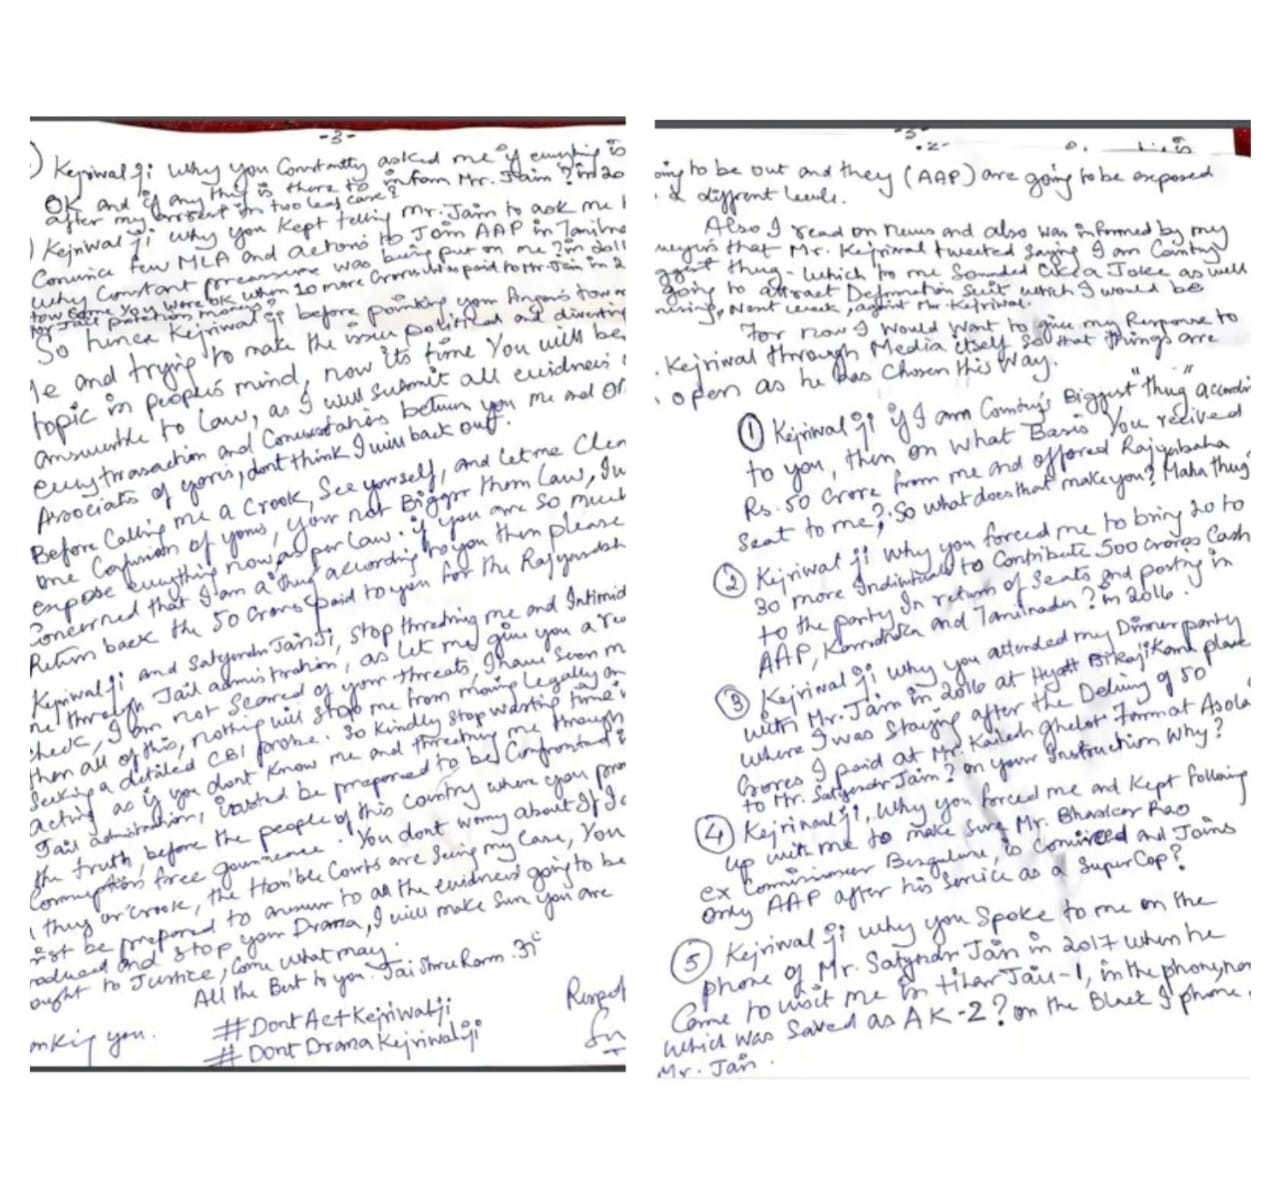 -3-
Kejriwal ji why you Constantly asked me if everything is
OK and if any thing is there to inform Mr. Jain? in 20
after my arrest in two leaf case?
Kejriwal ji why you Kept telling Mr. Jain to ask me
Convince few MLA and actors to Join AAP in Tamilna
why Constant pressure was being put on me? in 201
how come you were OK when 10 more Crores was paid to Mr. Jain in 2
Mr Jail protection money?
So hence Kejriwal ji before pointing your fingers towar
Me and trying to make the issue political and diverting
topic in people's mind, now its time You will be
answerble to Law, as I will submit all evidnes
every transaction and Conversations between you me and
Associates of yours, dont think I will back out.
Before Calling me a Crook, See yourself, and let me Clea
one Confusion of yours, your not Bigger then Law,
expose everything now as per Law. if you are so much
Concerned that I am a thug according to you then please
Return back the 50 Crores I paid to you for the Rajyasabh
Kejriwal ji and Satyendr Jain Ji, stop thretning me and Intimid
me through Jail administration, as let me give you a
check, I am not Scared of your threats, I have seen m
then all of this, nothing will stop me from moving legally an
Seeking a detailed CBI probe. So kindly stop wasting time
acting as if you dont know me and threting me through
Jail administration, insted be preprared to be Confronted
the truth, before the people of this country where you pro
Corruption free governence. You dont worry about If I
thug or Crook, the Hon'ble Courts are Seing my Case, You
be prepared to answer to all the evidnes going to be
produced and stop your Drama, I will make Sure you are
ought to Justice, Come what may.
All the Best to you. Jai Shree Ram.
#DontActKejriwalji
# DontDramaKejriwalji
nking you.
-2-
oing to be out and they (AAP) are going to be exposed
& diffrent levels.
Also I read on news and also was informed by my
that Mr. Kejriwal tweeted saying I am Country
ggest thug- which to me Sounded like a Joke as well
going to attract Defamation Suit which I would be
Next week, against Mr. Kejriwal.
For now I would want to give my Response to
Kejriwal through Media itself so that things are
open as he has Chosen this Way.
① Kejriwal ji if I am Country's Biggest "thug" accordin
to you, then on what Basis You recived
Rs. 50 Crore from me and offored Rajyasbaha
Seat to me? So what does that make you? Maha thug
② Kejriwal ji why you forced me to bring 20 to
30 more Individuals to Contribute 500 crores Cash
to the party In return of Seats and posting in
AAP, Karnatka and Tamilnadu? in 2016.
③ Kejriwal ji why you attended my Dinner party
with Mr. Jain in 2016 at Hyatt Bikaji Kama place
where I was Staying after the Delivry of 50
Crores I paid at Mr. Kailesh Ghelot Farmat Asola
to Mr. Satyendr Jain? on your Instruction Why?
④ Kejriwal ji, why you forced me and Kept following
up with me to make Sure Mr. Bhaskar Rao
ex Commissioner Bengaluru, is Convinced and Joins
Only AAP after his Service as a Super Cop?
⑤ Kejriwal ji why you Spoke to me on the
phone of Mr. Satyendr Jain in 2017 when he
Came to visit me in tihar Jail-1, in the phone, no
which was Saved as AK-2? on the Black I phone.
Mr. Jain.